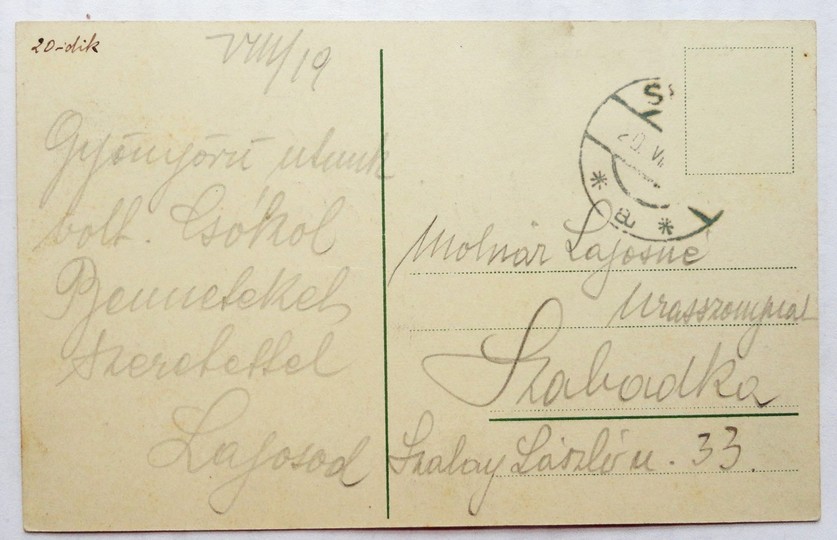 20-dik
VIII/19
Gyönyörü utunk
volt. Csókol
Benneteket
szeretettel
Lajosod
20. VI
a
Molnár Lajosné
Urasszonynak
Szabadka
Szalay László u. 33.